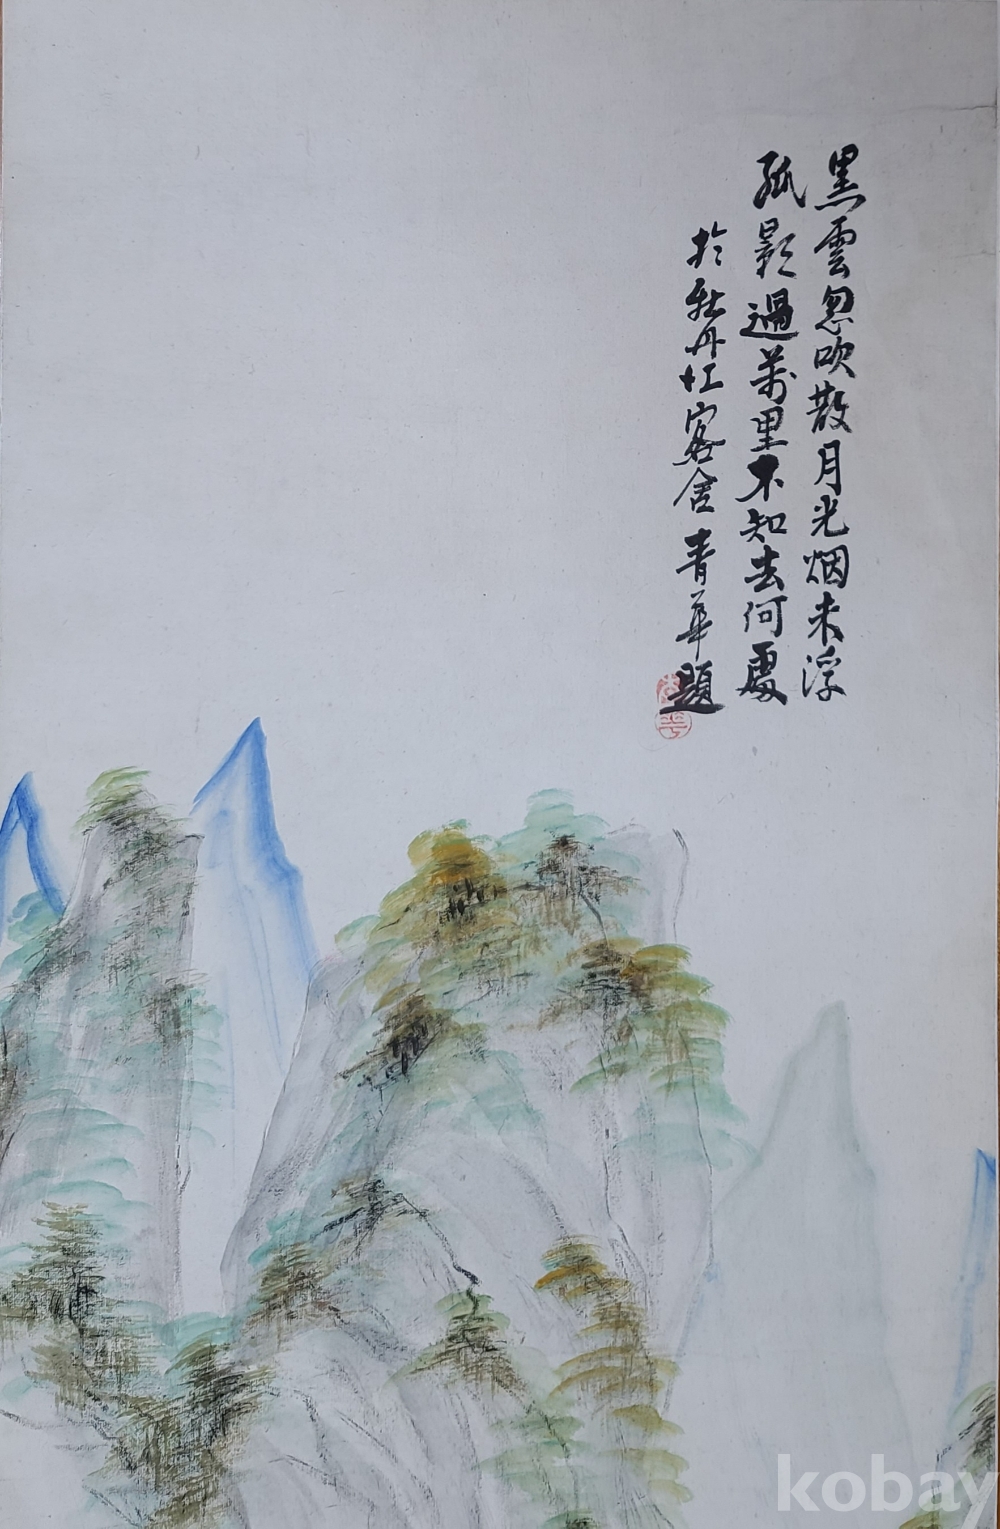 黑雲忽吹散月光烟未浮
孤影過萬里不知去何處
於牡丹江客舍 青華題
kobay